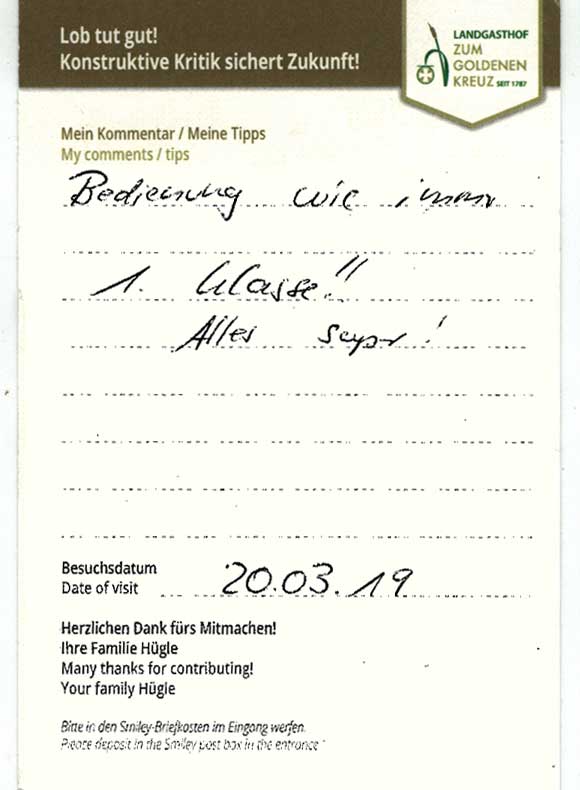 Lob tut gut!
Konstruktive Kritik sichert Zukunft!
LANDGASTHOF
ZUM
GOLDENEN
KREUZ SEIT 1787
Mein Kommentar / Meine Tipps
My comments / tips
Bedienung wie immer
1. Klasse!!
Alles super!
Besuchsdatum
Date of visit 20.03.19
Herzlichen Dank fürs Mitmachen!
Ihre Familie Hügle
Many thanks for contributing!
Your family Hügle
Bitte in den Smiley-Briefkosten im Eingang werfen.
Please deposit in the Smiley post box in the entrance